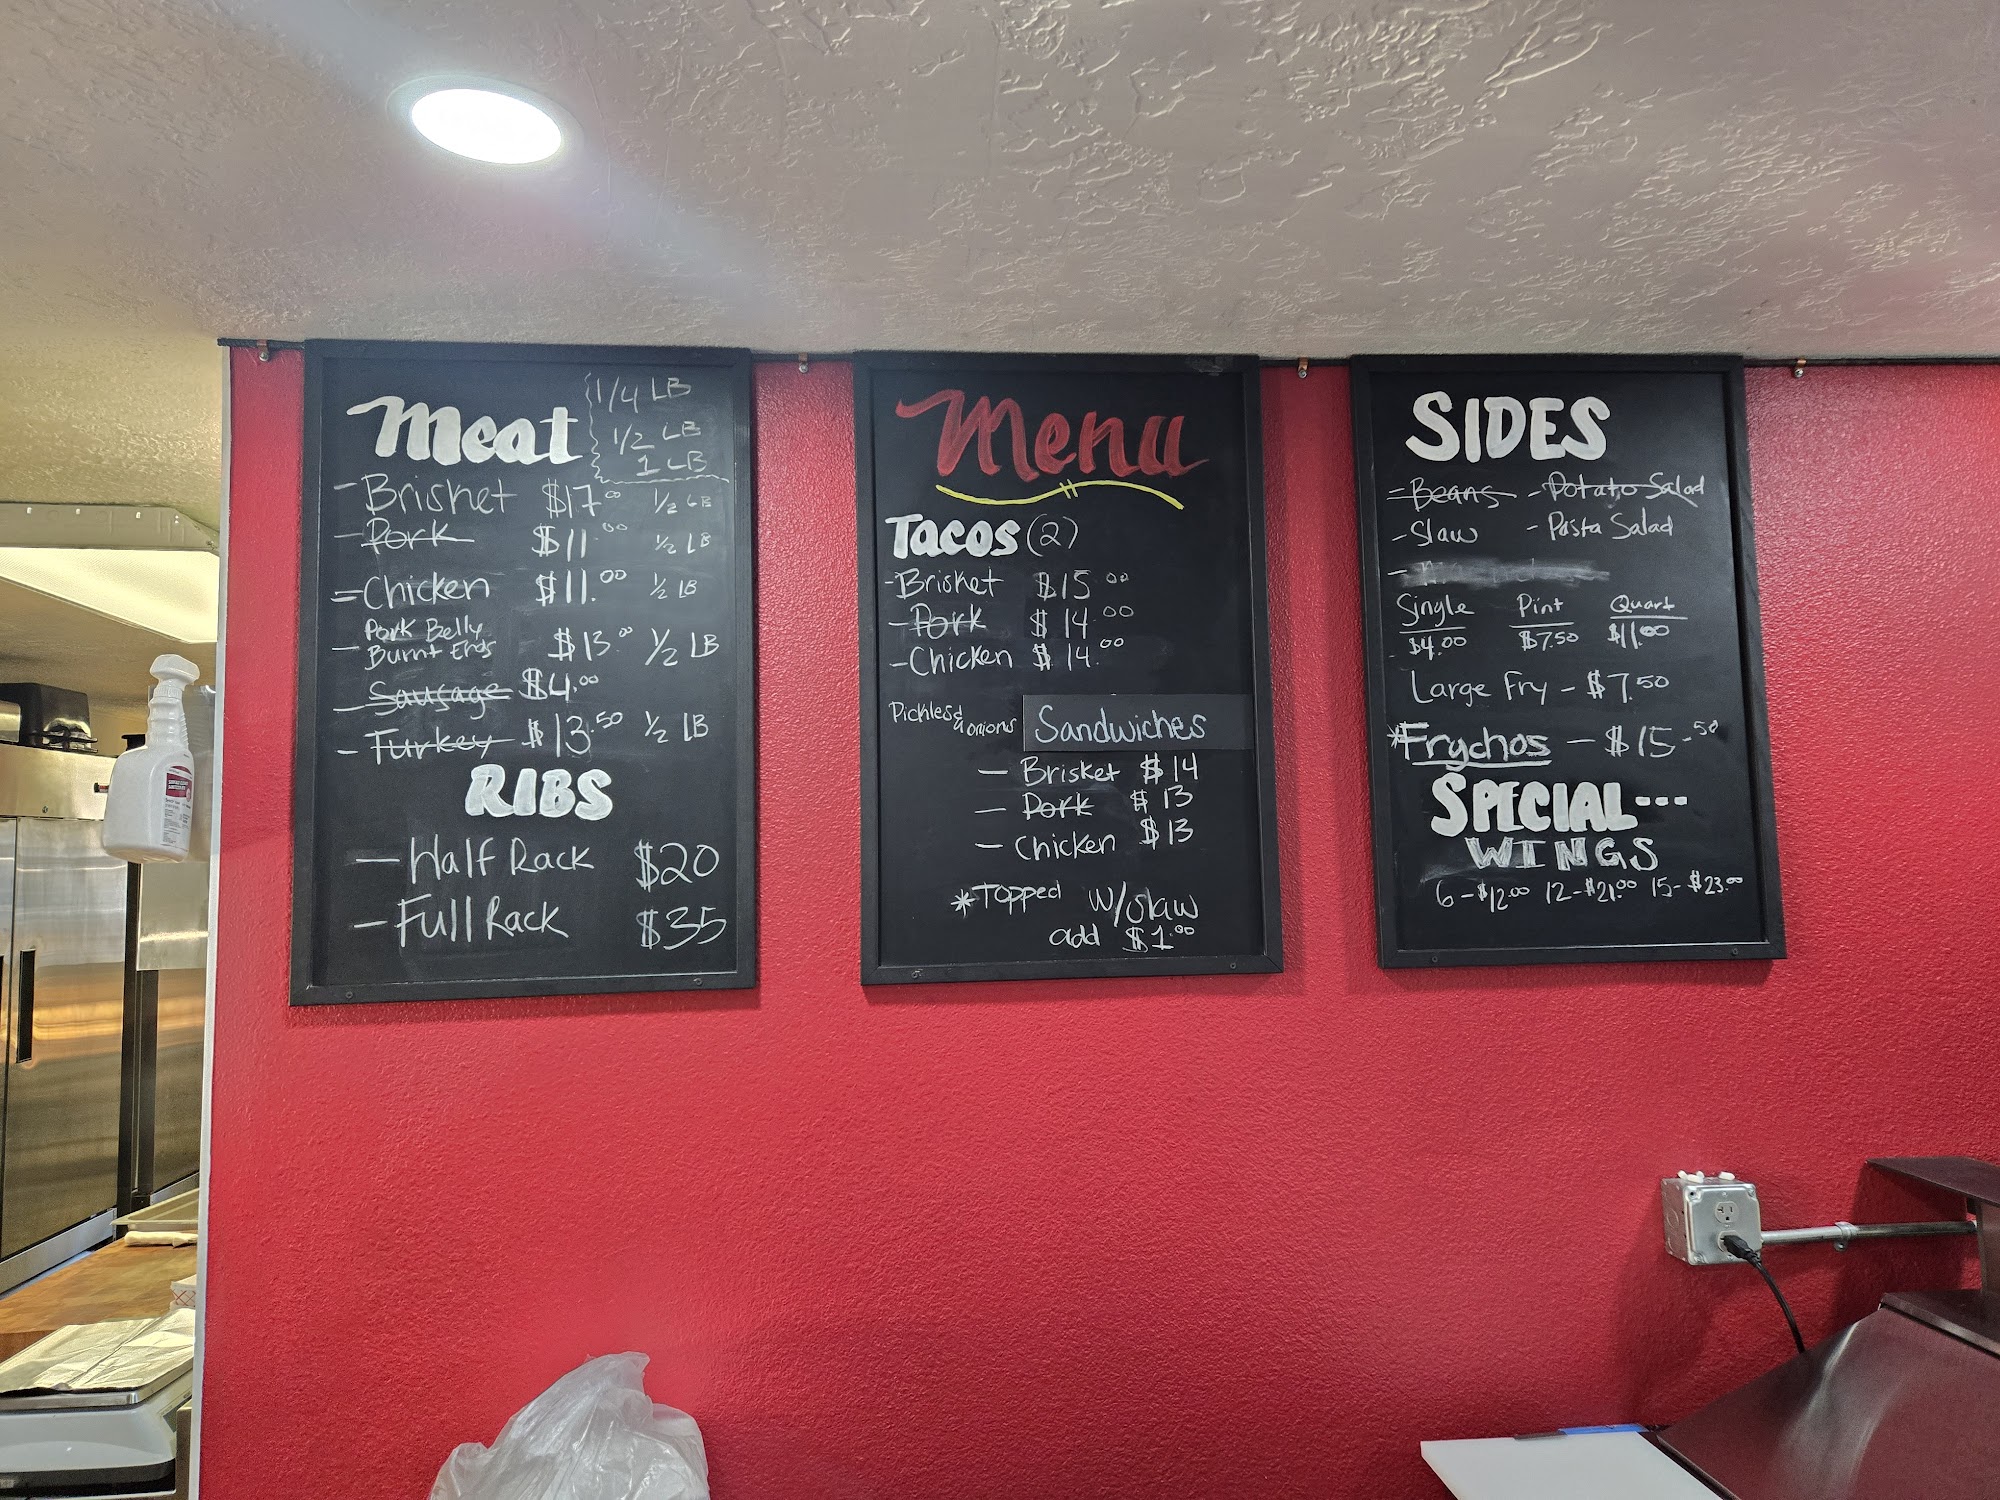 Meat
1/4 LB
1/2 LB
1 LB
- Brisket $17.00 1/2 LB
- Pork $11.00 1/2 LB
- Chicken $11.00 1/2 LB
- Pork Belly
Burnt Ends $13.00 1/2 LB
- Sausage $4.00
- Turkey $13.50 1/2 LB
RIBS
- Half Rack $20
- Full Rack $35
Menu
Tacos (2)
- Brisket $15.00
- Pork $14.00
- Chicken $14.00
Pickles & onions
Sandwiches
- Brisket $14
- Pork $13
- Chicken $13
*Topped w/slaw
add $1.00
SIDES
- Beans - Potato Salad
- Slaw - Pasta Salad
-
Single Pint Quart
$4.00 $7.50 $11.00
Large Fry - $7.50
*Frychos - $15.50
SPECIAL...
WINGS
6-$12.00 12-$21.00 15-$23.00